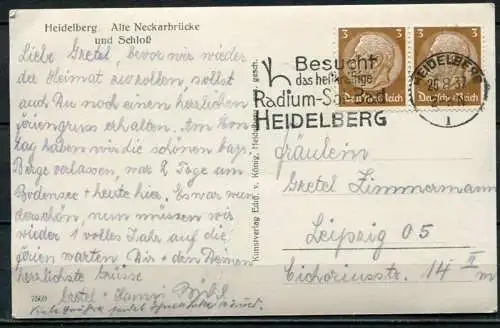 Heidelberg Alte Neckarbrücke
und Schloß
Liebe Gretel, bevor wir wieder
der Heimat zurollen, sollst
auch Du noch einen herzlichen
Feriengruss erhalten. Am
tag haben wir die schönen bayr.
Berge verlassen, war 2 Tage am
Bodensee + heute hier. Es war wun
derschön, nun müssen wir
wieder 1 volles Jahr auf die
Ferien warten. Dir + den Deinen
herzlichste Grüsse
Gretel + Hanni
Kunstverlag Edm. v. König, Heidelberg gesch.
3 3
Deutsches Reich Deutsches Reich
Besucht
das heilkräftige
Radium-Sol-Bad
HEIDELBERG
HEIDELBERG
1
Fräulein
Gretel Zimmermann
Leipzig O5
Eichornusstr. 14 II